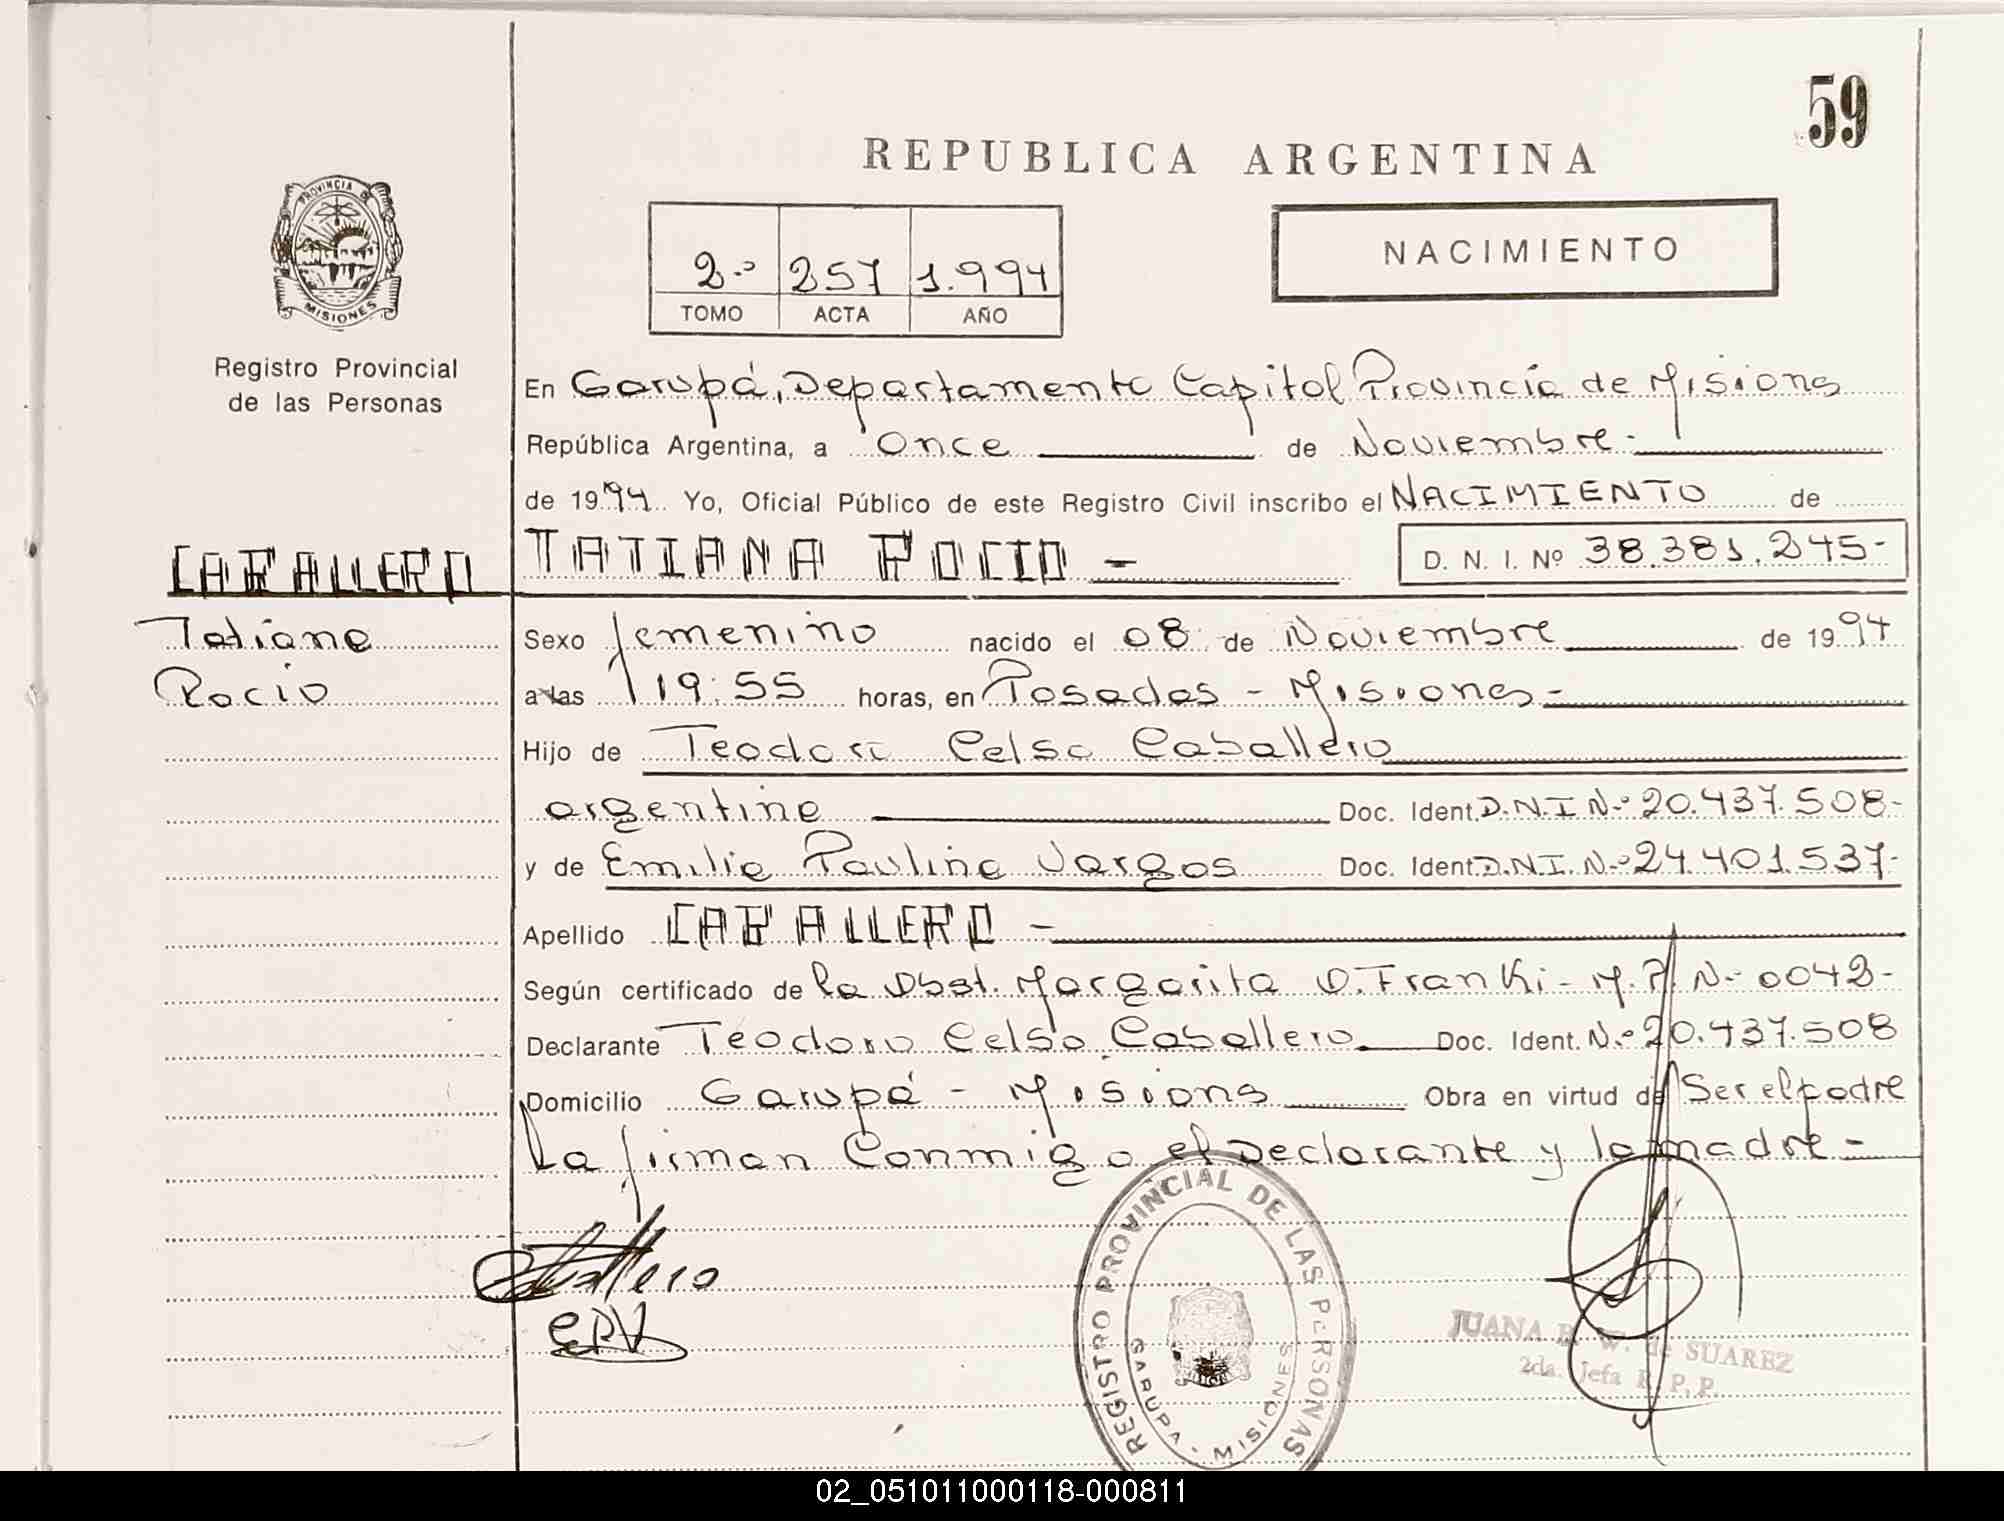 59
REPUBLICA ARGENTINA
PROVINCIA DE
MISIONES
Registro Provincial
de las Personas
2.º 257 1.994
TOMO ACTA AÑO
NACIMIENTO
En Garupá, Departamento Capital Provincia de Misiones
República Argentina, a Once de Noviembre.-
de 1994 Yo, Oficial Público de este Registro Civil inscribo el NACIMIENTO de
CABALLERO TATIANA ROCIO - D. N. I. Nº 38.381.245-
Tatiana
Rocio
Sexo femenino nacido el 08 de Noviembre de 1994
a las 19:55 horas, en Posadas - Misiones-
Hijo de Teodoro Celso Caballero
argentina Doc. Ident. D.N.I Nº 20.437.508-
y de Emilia Paulina Vargas Doc. Ident. D.N.I. Nº 24.401.537-
Apellido CABALLERO -
Según certificado de la Obst. Margarita O. Franki - M.P. Nº 0042-
Declarante Teodoro Celso Caballero Doc. Ident. Nº 20.437.508
Domicilio Garupá - Misiones Obra en virtud de Ser el padre
La firman Conmigo el Declarante y la madre -
Caballero
EPV
REGISTRO PROVINCIAL DE LAS PERSONAS
GARUPA - MISIONES
JUANA W. de SUAREZ
2da. Jefa R. P. P.
02_051011000118-000811